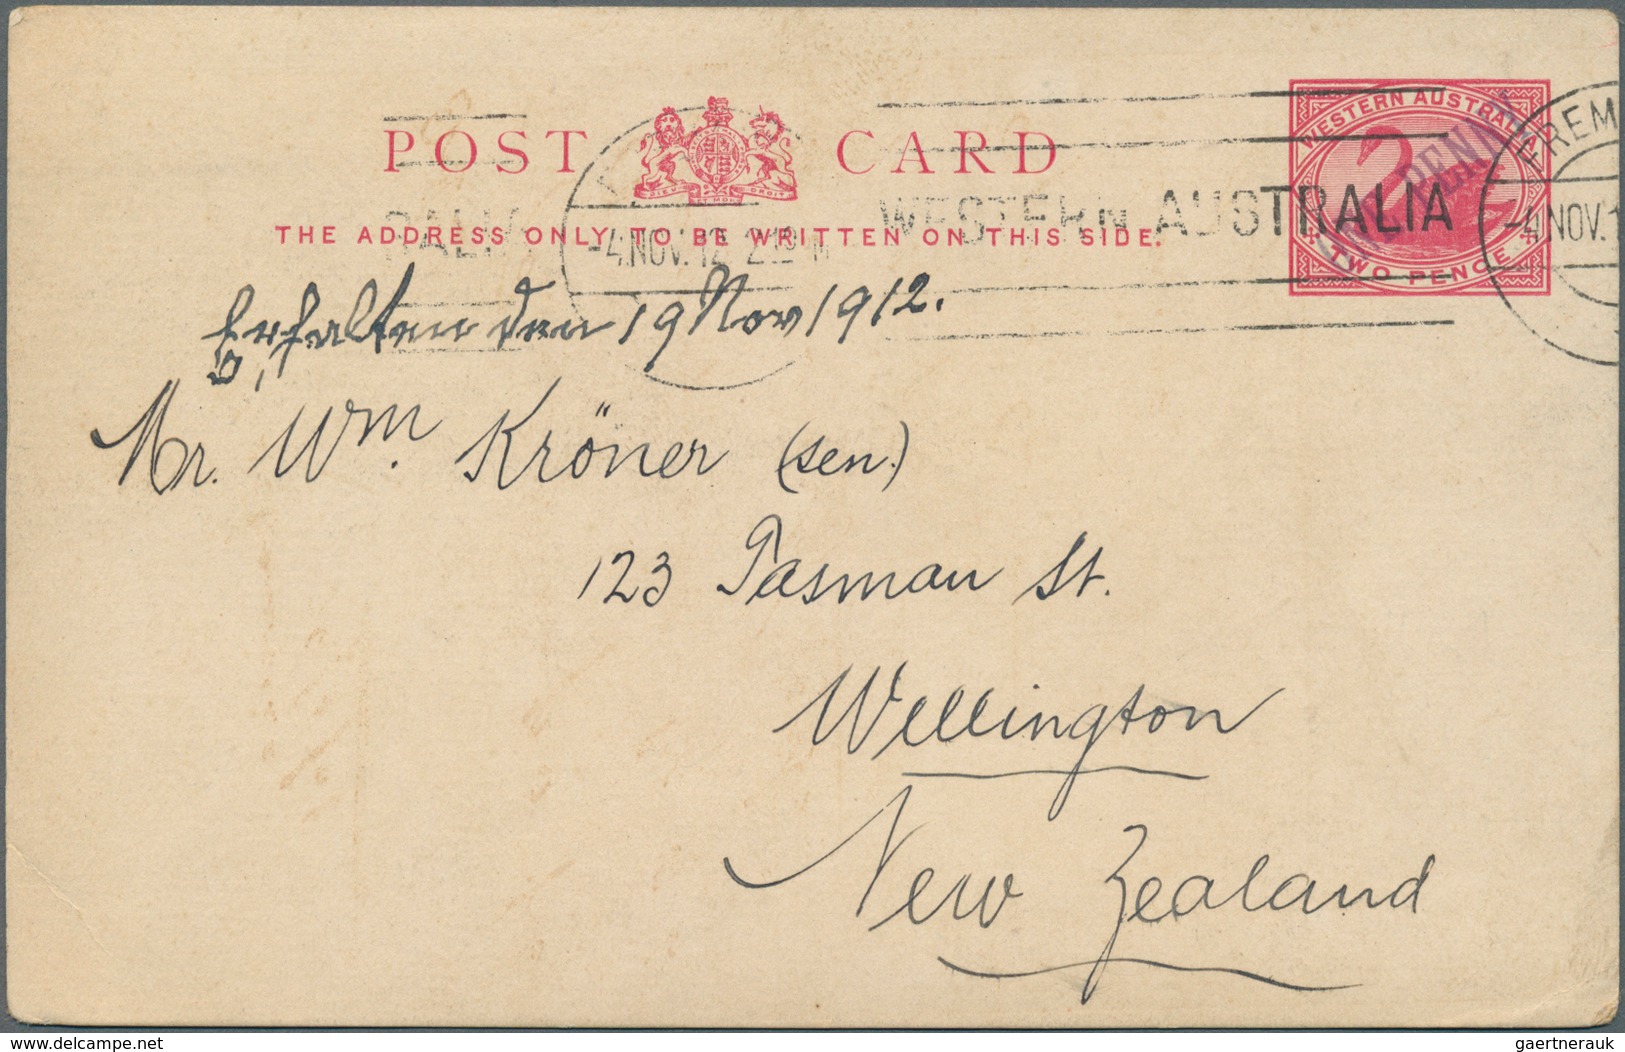 POST CARD
THE ADDRESS ONLY TO BE WRITTEN ON THIS SIDE.
WESTERN AUSTRALIA
TWO PENCE
PENNY
WESTERN AUSTRALIA
-4.NOV.12
FREM
-4 NOV.1
Erhalten den 19 Nov 1912.
Mr. Wm. Kröner (sen.)
123 Tasman St.
Wellington
New Zealand
delcampe.net
gaertnerauk